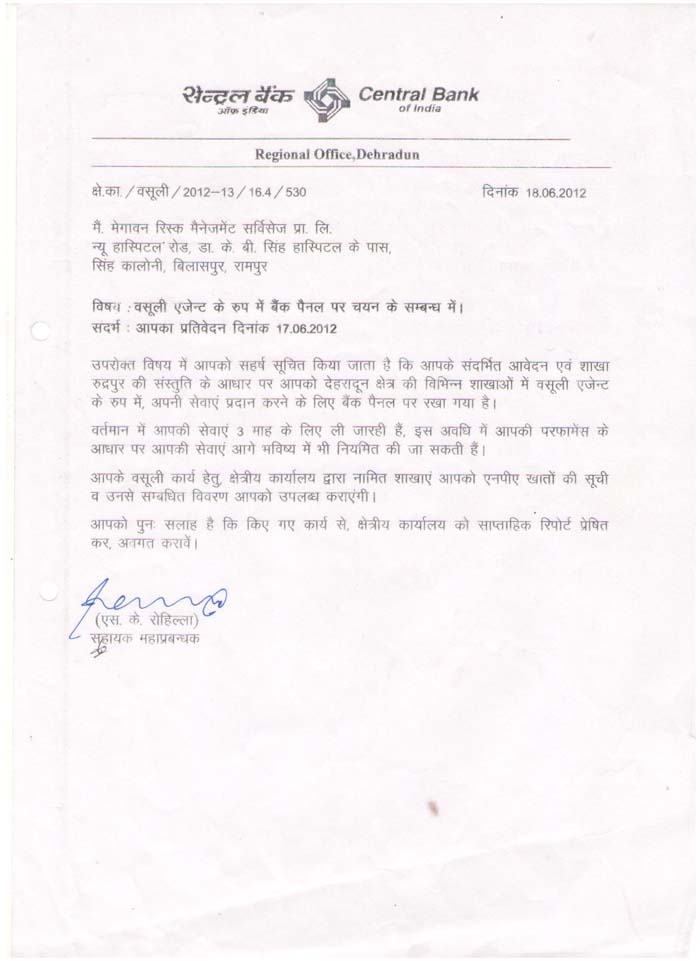 सेन्ट्रल बैंक
ऑफ़ इंडिया
Central Bank
of India
Regional Office,Dehradun
क्षे.का. / वसूली / 2012–13 / 16.4 / 530
दिनांक 18.06.2012
मैं. मेगावन रिस्क मैनेजमेंट सर्विसेज प्रा. लि.
न्यू हास्पिटल रोड, डा. के. बी. सिंह हास्पिटल के पास,
सिंह कालोनी, बिलासपुर, रामपुर
विषय : वसूली एजेन्ट के रुप में बैंक पैनल पर चयन के सम्बन्ध में।
सदर्भ : आपका प्रतिवेदन दिनांक 17.06.2012
उपरोक्त विषय में आपको सहर्ष सूचित किया जाता है कि आपके संदर्भित आवेदन एवं शाखा
रुद्रपुर की संस्तुति के आधार पर आपको देहरादून क्षेत्र की विभिन्न शाखाओं में वसूली एजेन्ट
के रुप में, अपनी सेवाएं प्रदान करने के लिए बैंक पैनल पर रखा गया है।
वर्तमान में आपकी सेवाएं 3 माह के लिए ली जारही हैं, इस अवधि में आपकी परफामेंस के
आधार पर आपकी सेवाएं आगे भविष्य में भी नियमित की जा सकती हैं।
आपके वसूली कार्य हेतु, क्षेत्रीय कार्यालय द्वारा नामित शाखाएं आपको एनपीए खातों की सूची
व उनसे सम्बधित विवरण आपको उपलब्ध कराएंगी।
आपको पुनः सलाह है कि किए गए कार्य से, क्षेत्रीय कार्यालय को साप्ताहिक रिपोर्ट प्रेषित
कर, अवगत करावें।
(एस. के. रोहिल्ला)
सहायक महाप्रबन्धक